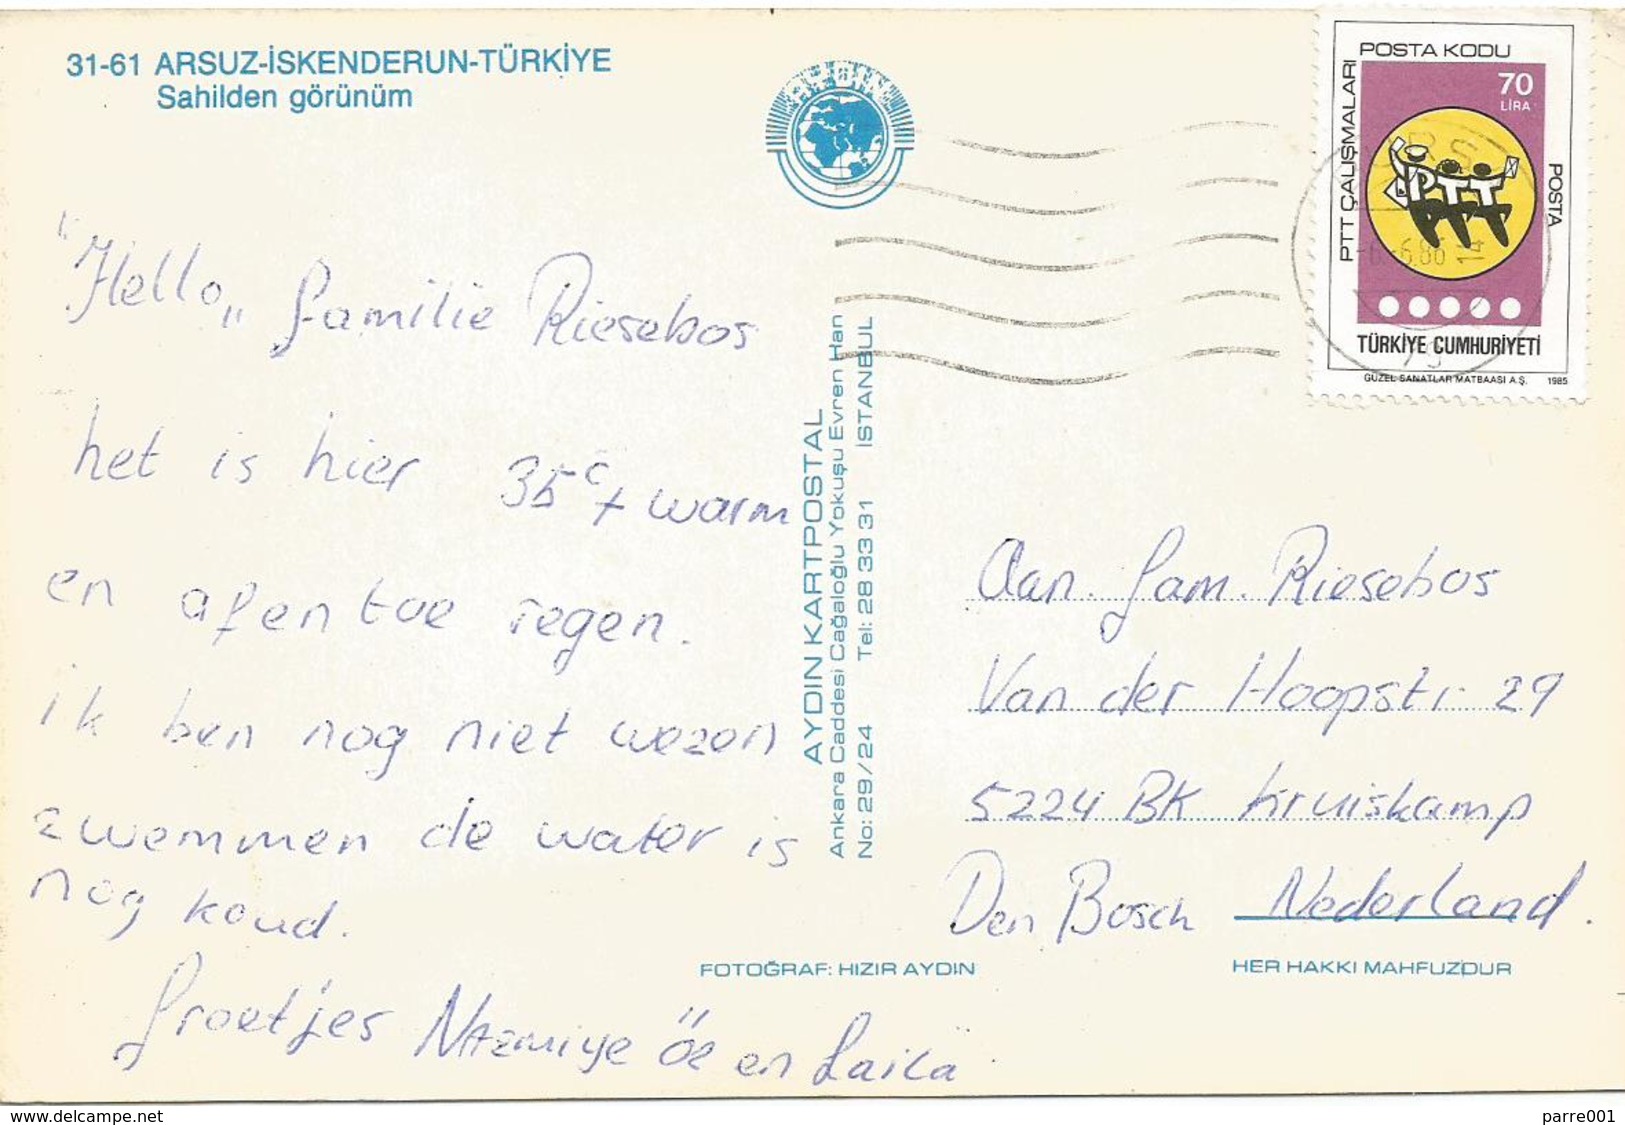 31-61 ARSUZ-İSKENDERUN-TÜRKİYE
Sahilden görünüm
AYDIN
"Hello,, familie Riesebos
het is hier 35 c + warm
en afentoe regen.
ik ben nog niet wezen
zwemmen de water is
nog koud.
Groetjes Nazmiye Öz en Laila
AYDIN KARTPOSTAL
Ankara Caddesi Cağaloğlu Yokuşu Evren Han
No: 29/24 Tel: 28 33 31 İSTANBUL
FOTOĞRAF: HIZIR AYDIN
POSTA KODU
PTT ÇALIŞMALARI
70
LİRA
PTT
POSTA
TÜRKİYE CUMHURİYETİ
GÜZEL SANATLAR MATBAASI A.Ş. 1985
-6.-6.86 14
Aan. fam. Riesebos
Van der Hoopstr 29
5224 BK Kruiskamp
Den Bosch Nederland.
HER HAKKI MAHFUZDUR
www.delcampe.net
parre001